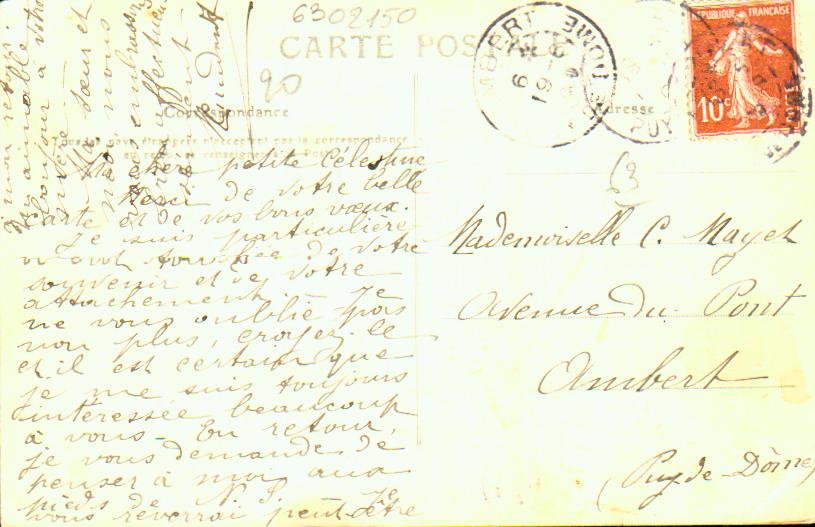 6302150
CARTE POSTALE
90
Correspondance
Adresse
RÉPUBLIQUE FRANÇAISE
10c
AMBERT
PUY-DE-DOME
63
Ma chère petite Célestine
Merci de votre belle
carte et de vos bons vœux.
Je suis particulière
touchée de votre
souvenir et de votre
attachement. Je
ne vous oublie pas
non plus, croyez-le
et il est certain que
je me suis toujours
intéressée beaucoup
à vous - En retour,
je vous demande de
penser à moi aux
pieds de N. S. Je
vous reverrai peut-être
à mon retour.
bonjour à votre
mère
sœur et
vous
affectueu
Mademoiselle C. Mayet
Avenue du Pont
Ambert
(Puy-de-Dôme)